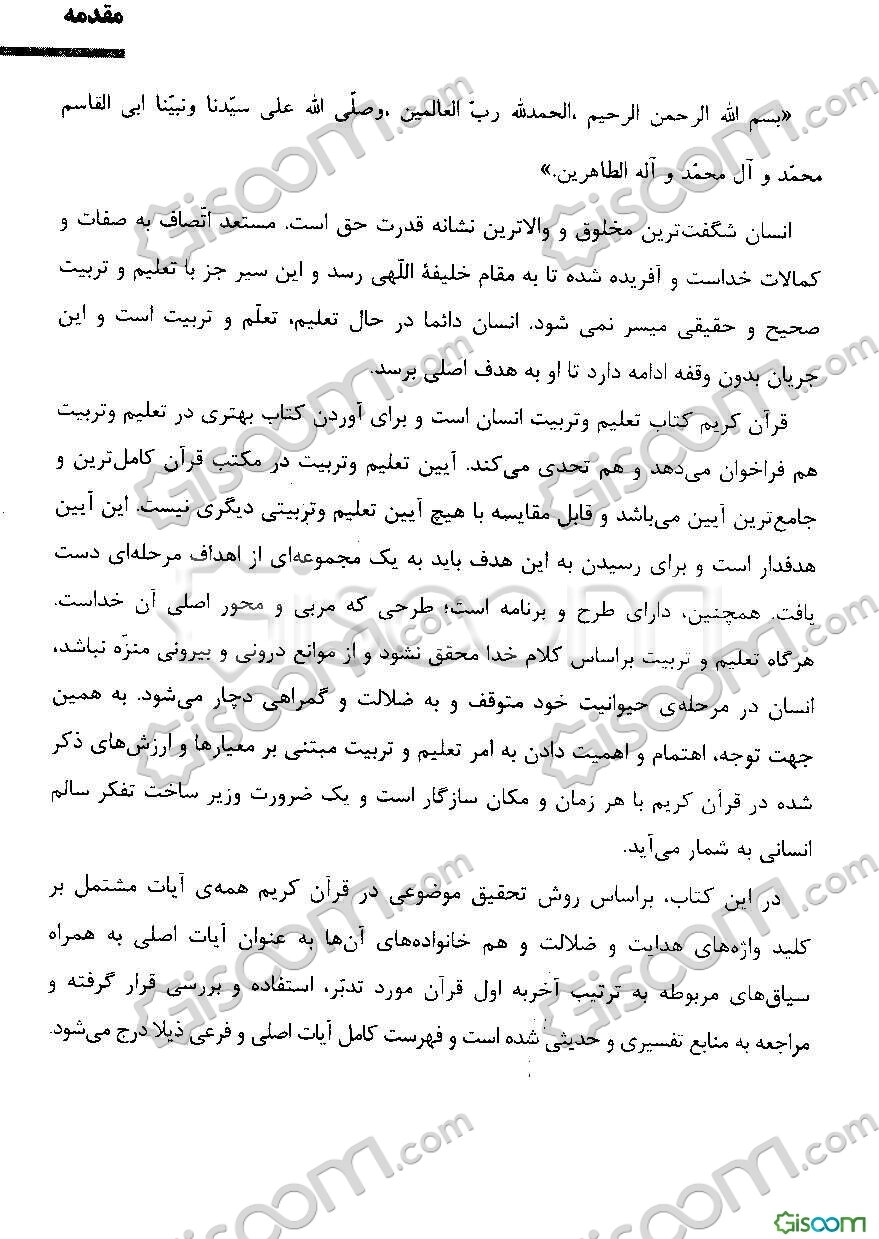 مقدمه
«بسم الله الرحمن الرحیم ،الحمدلله ربّ العالمین ،وصلّی الله علی سیّدنا ونبیّنا ابی القاسم
محمّد و آل محمّد و آله الطاهرین.»
انسان شگفت‌ترین مخلوق و والاترین نشانه قدرت حق است. مستعد اتّصاف به صفات و
کمالات خداست و آفریده شده تا به مقام خلیفۀ اللّهی رسد و این سیر جز با تعلیم و تربیت
صحیح و حقیقی میسر نمی شود. انسان دائما در حال تعلیم، تعلّم و تربیت است و این
جریان بدون وقفه ادامه دارد تا او به هدف اصلی برسد.
قرآن کریم کتاب تعلیم وتربیت انسان است و برای آوردن کتاب بهتری در تعلیم وتربیت
هم فراخوان می‌دهد و هم تحدی می‌کند. آیین تعلیم وتربیت در مکتب قرآن کامل‌ترین و
جامع‌ترین آیین می‌باشد و قابل مقایسه با هیچ آیین تعلیم وتربیتی دیگری نیست. این آیین
هدفدار است و برای رسیدن به این هدف باید به یک مجموعه‌ای از اهداف مرحله‌ای دست
یافت. همچنین، دارای طرح و برنامه است؛ طرحی که مربی و محور اصلی آن خداست.
هرگاه تعلیم و تربیت براساس کلام خدا محقق نشود و از موانع درونی و بیرونی منزّه نباشد،
انسان در مرحله‌ی حیوانیت خود متوقف و به ضلالت و گمراهی دچار می‌شود. به همین
جهت توجه، اهتمام و اهمیت دادن به امر تعلیم و تربیت مبتنی بر معیارها و ارزش‌های ذکر
شده در قرآن کریم با هر زمان و مکان سازگار است و یک ضرورت وزیر ساخت تفکر سالم
انسانی به شمار می‌آید.
در این کتاب، براساس روش تحقیق موضوعی در قرآن کریم همه‌ی آیات مشتمل بر
کلید واژه‌های هدایت و ضلالت و هم خانواده‌های آن‌ها به عنوان آیات اصلی به همراه
سیاق‌های مربوطه به ترتیب آخربه اول قرآن مورد تدبّر، استفاده و بررسی قرار گرفته و
مراجعه به منابع تفسیری و حدیثی شده است و فهرست کامل آیات اصلی و فرعی ذیلا درج می‌شود.
Gisoom.com
Gisoom